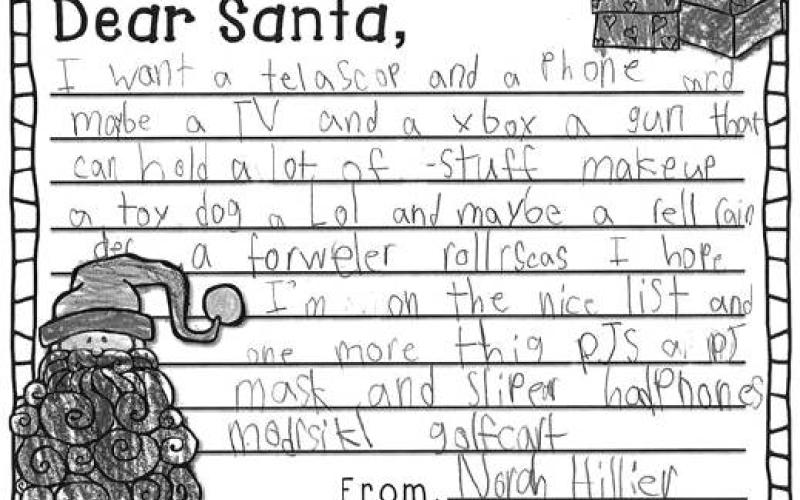 Dear Santa,
I want a telascop and a Phone and
maybe a TV and a xbox a gun that
can hold a lot of stuff makeup
a toy dog a Lol and maybe a rell rain
der a forweler rollrscas I hope
I'm on the nice list and
one more thig PJs a PJ
mask and sliper hadphones
modrsikl golfcart
From, Norah Hillier